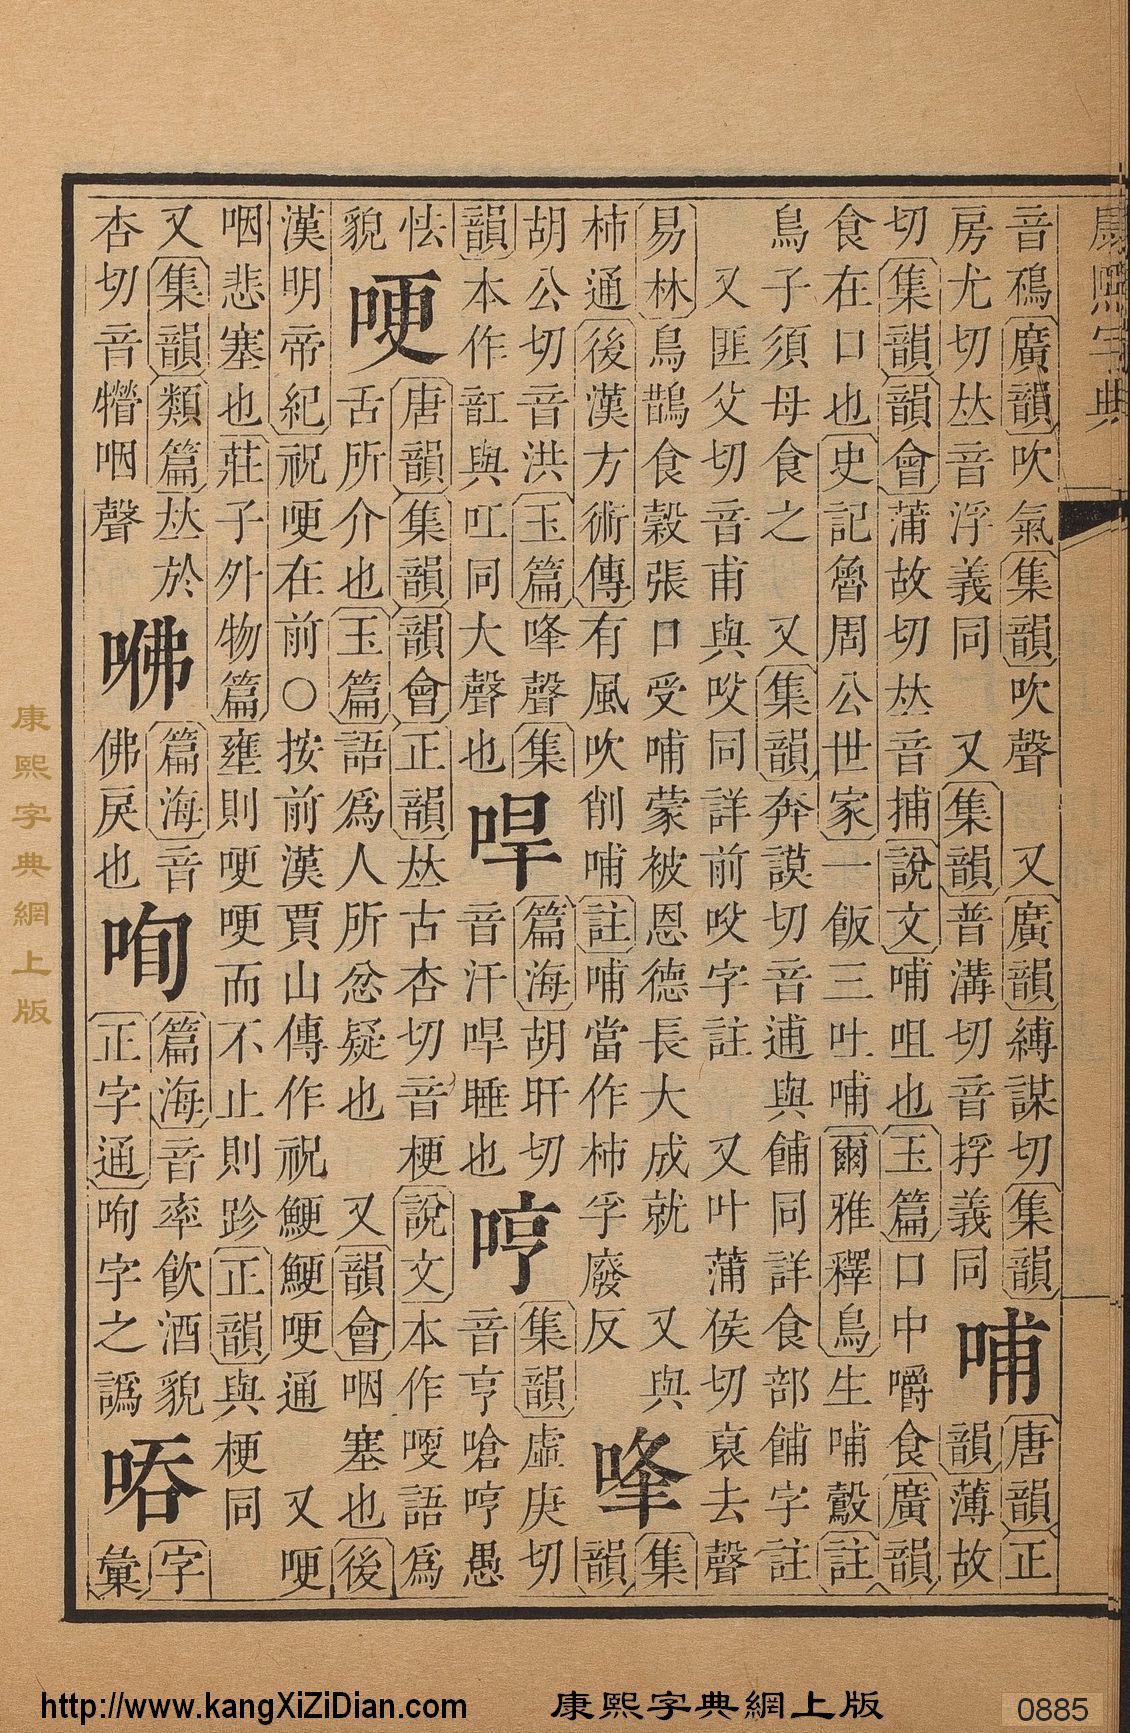 康熙字典
音碼廣韻吹氣集韻吹聲 又廣韻縛謀切集韻
房尤切𠀤音浮義同 又集韻普溝切音捊義同
哺
唐韻正
韻薄故
切集韻韻會蒲故切𠀤音捕說文哺咀也玉篇口中嚼食廣韻
食在口也史記魯周公世家一飯三吐哺爾雅釋鳥生哺鷇註
鳥子須母食之 又集韻奔謨切音逋與餔同詳食部餔字註
又匪父切音甫與㕮同詳前㕮字註 又叶蒲侯切裒去聲
易林鳥鵲食穀張口受哺蒙被恩德長大成就 又與
柿通後漢方術傳有風吹削哺註哺當作柿孚廢反
㖓
集
韻
胡公切音洪玉篇㖓聲集
韻本作訌與叿同大聲也
哻
篇海胡旰切
音汗哻睡也
哼
集韻虛庚切
音亨嗆哼愚
怯
貌
哽
唐韻集韻韻會正韻𠀤古杏切音梗說文本作㖫語爲
舌所介也玉篇語爲人所忿疑也 又韻會咽塞也後
漢明帝紀祝哽在前〇按前漢賈山傳作祝鯁鯁哽通 又哽
咽悲塞也莊子外物篇壅則哽哽而不止則跈正韻與梗同
又集韻類篇𠀤於
杏切音咽聲
篇海音
佛戾也
篇海音率飲酒貌
正字通咰字之譌
字
彙
康熙字典網上版
http://www.kangXiZiDian.com 康熙字典網上版 0885